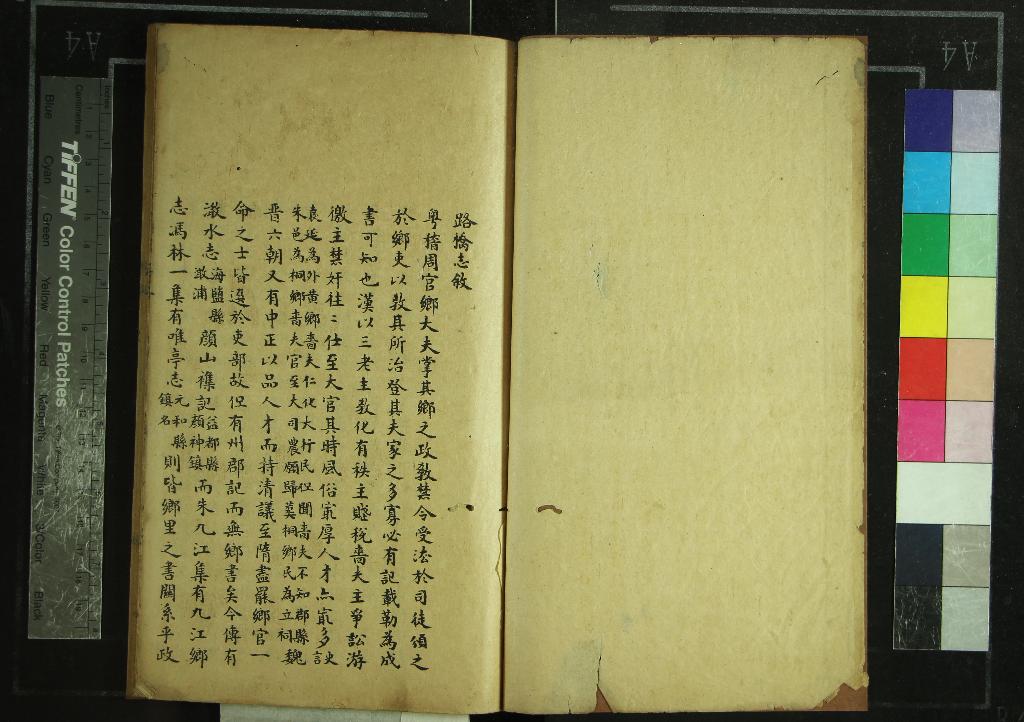 路橋志敘
粤稽周官鄉大夫掌其鄉之政教禁令受法於司徒頒之
於鄉吏以教其所治登其夫家之多寡必有記載勒為成
書可知也漢以三老主教化有秩主賤稅嗇夫主爭訟游
徼主禁奸往〻仕至大官其時風俗冣厚人才亦冣多史言
袁延為外黄鄉嗇夫仁化大行民但聞嗇夫不知郡縣
朱邑為桐鄉嗇夫官至大司農願歸葬桐鄉民為立祠魏
晋六朝又有中正以品人才而持清議至隋盡罷鄉官一
命之士皆選於吏部故但有州郡記而無鄉書矣今傳有
澉水志海鹽縣澉浦顔山襍記益都縣顔神鎮而朱九江集有九江鄉
志馮林一集有唯亭志元和縣鎮名則皆鄉里之書關系乎政
TIFFEN Color Control Patches
Blue Cyan Green Yellow Red Magenta White 3/Color Black
Centimetres
Inches
A4
A4